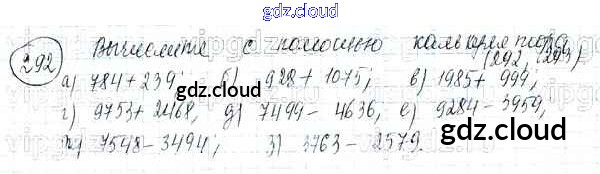 gdz.cloud
292 Вычислите с помощью калькулятора
(292, 293)
а) 784 + 239; б) 928 + 1075; в) 1985 + 999;
г) 9753 + 2468, д) 7499 - 4636, е) 9284 - 3959,
ж) 7548 - 3494; з) 3763 - 2579.
gdz.cloud
gdz.cloud
gdz.cloud